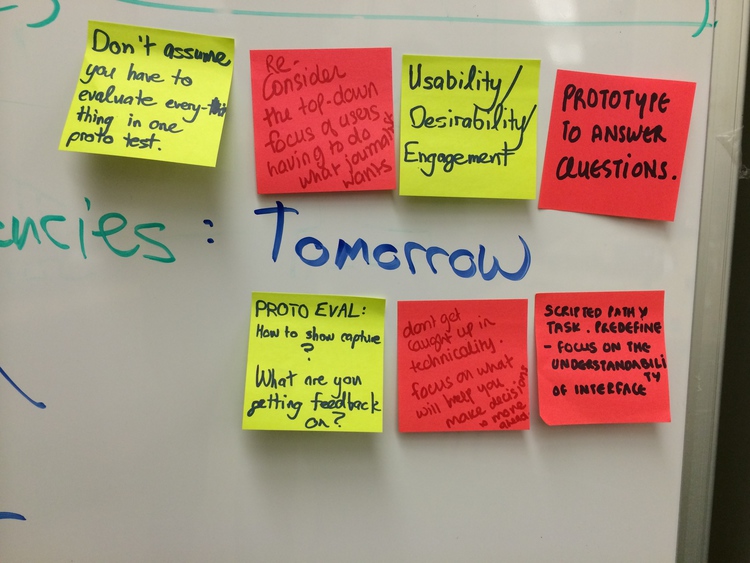 Don't assume
you have to
evaluate every-
thing in one
proto test.
RE-
Consider
the top-down
focus of users
having to do
what journalist
wants
Usability/
Desirability/
Engagement
PROTOTYPE
TO ANSWER
QUESTIONS.
encies: Tomorrow
PROTO EVAL:
How to show capture
?
What are you
getting feedback
on?
don't get
caught up in
technicality.
focus on what
will help you
make decisions
& more
SCRIPTED PATHY
TASK. PREDEFINE
- FOCUS ON THE
UNDERSTANDABILI
TY
OF INTERFACE